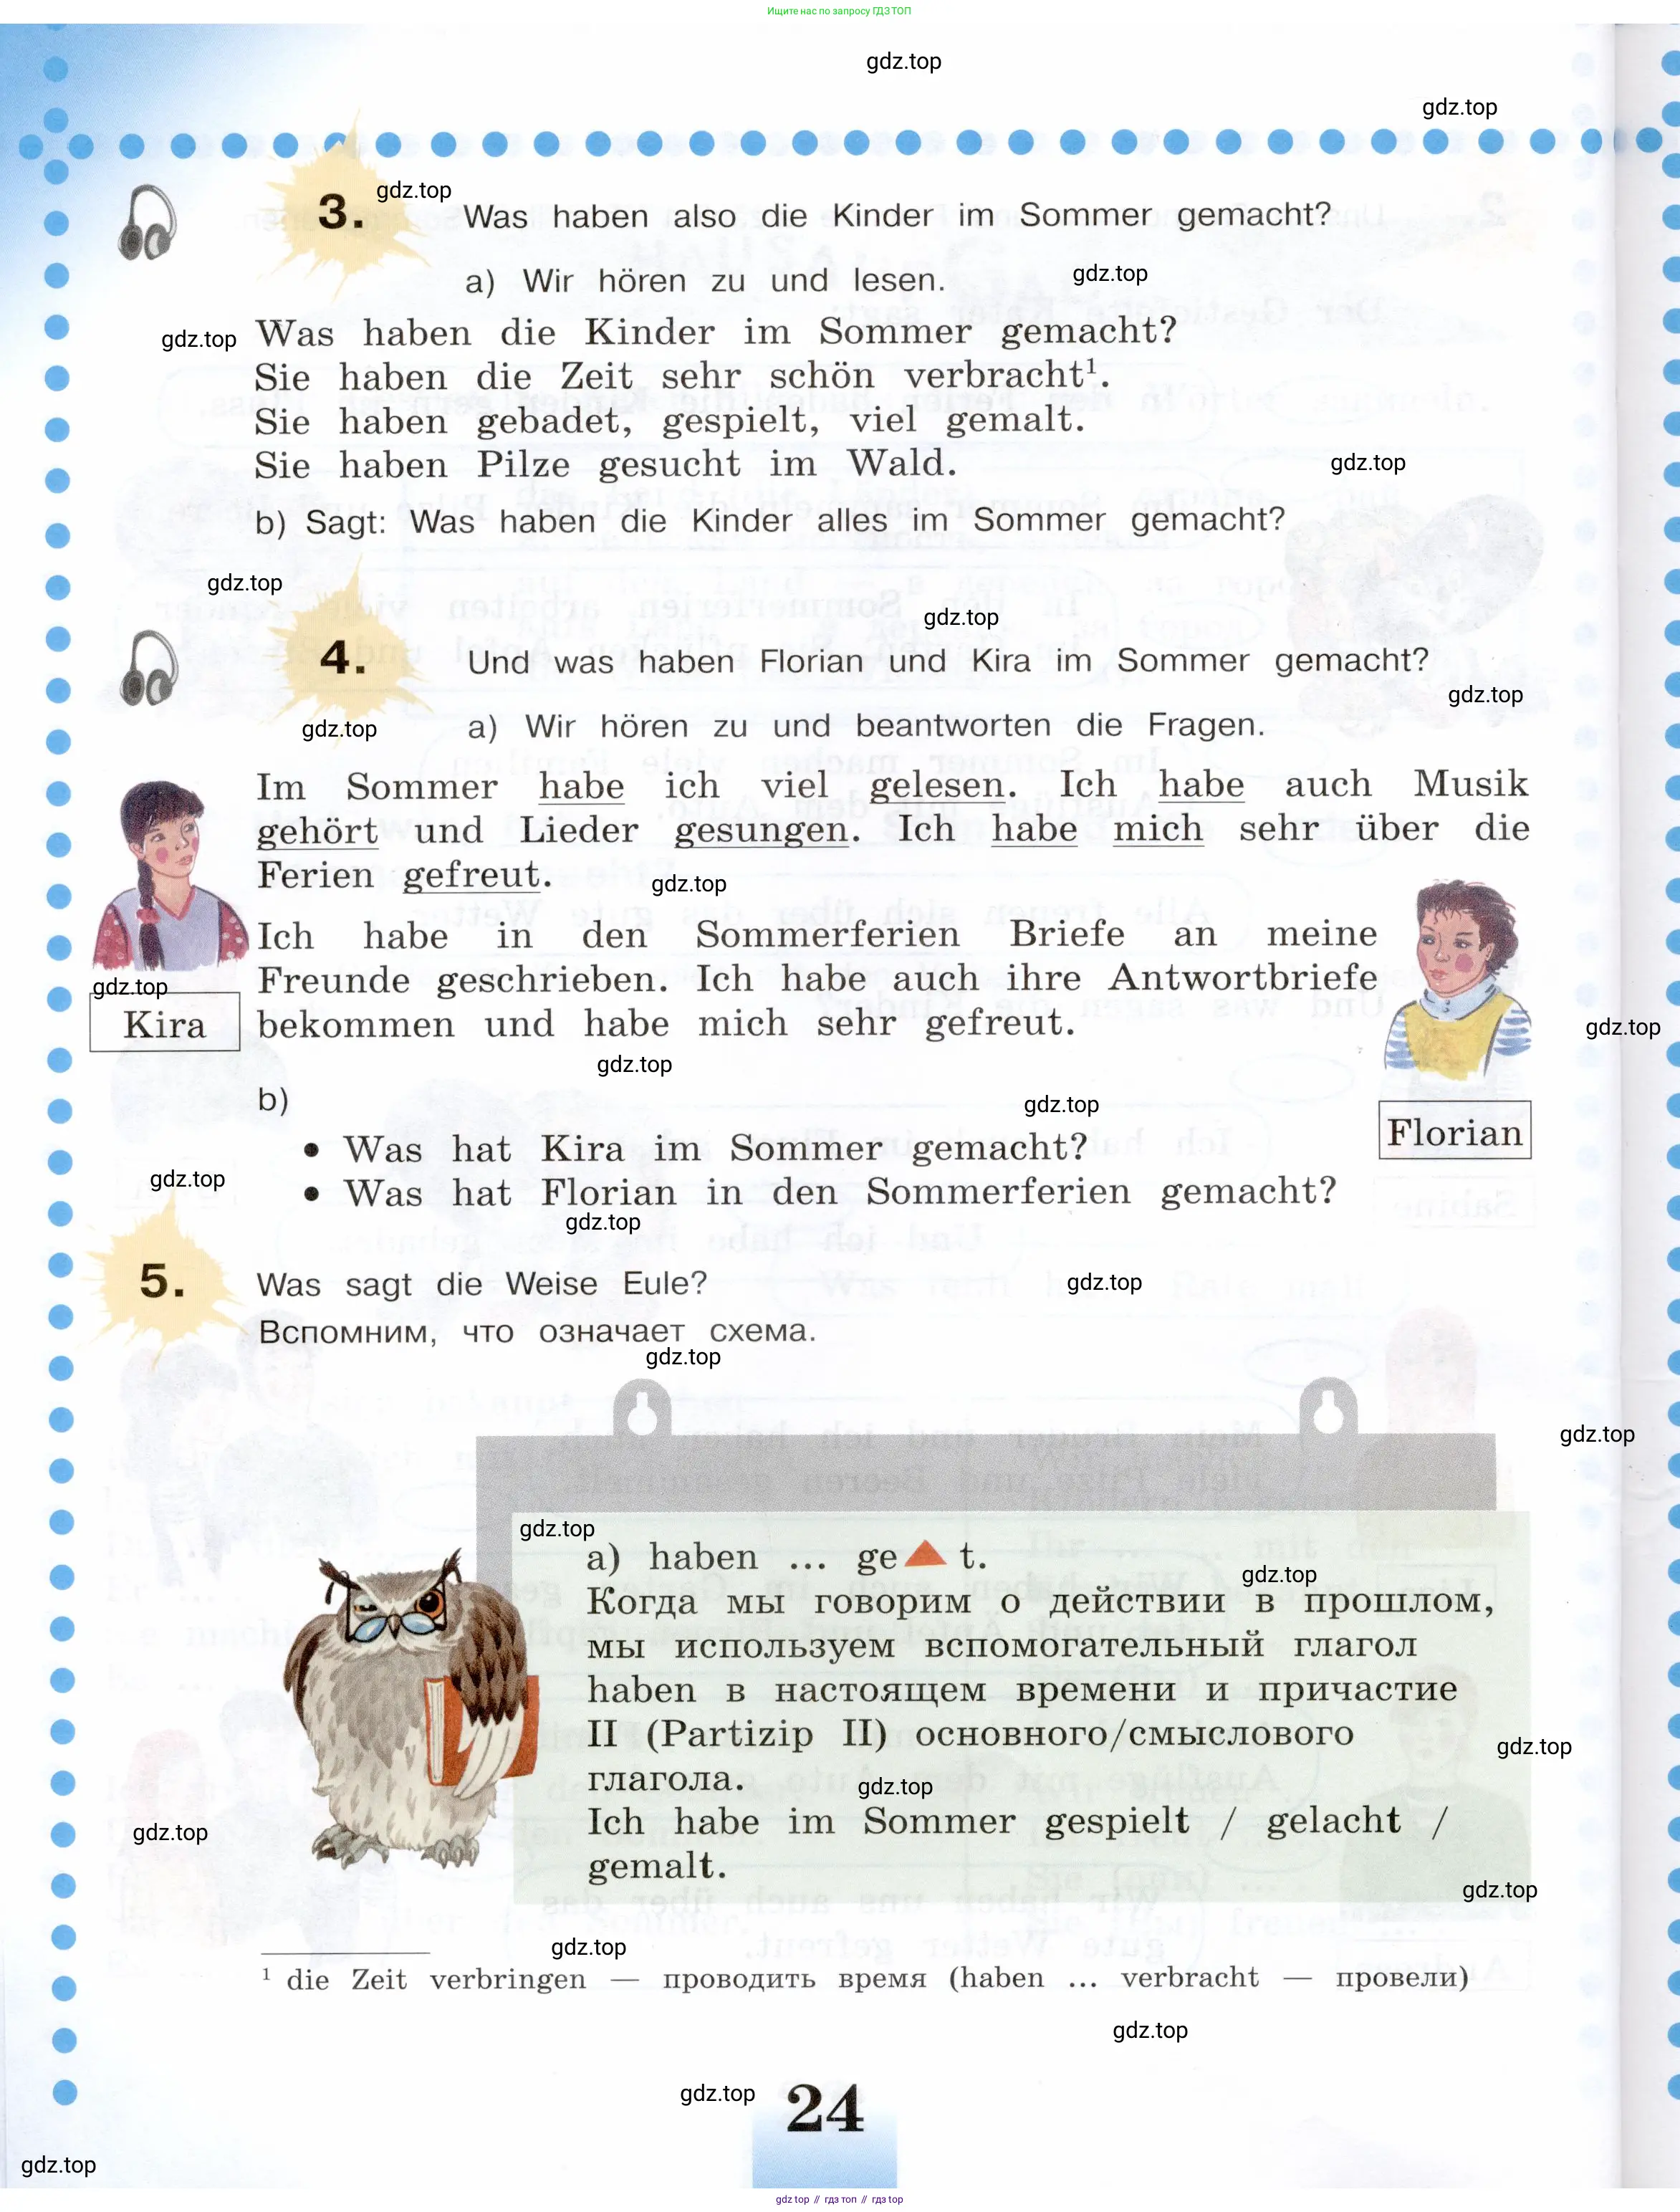 Ищите нас по запросу ГДЗ ТОП
gdz.top
gdz.top
3.
gdz.top
Was haben also die Kinder im Sommer gemacht?
a) Wir hören zu und lesen.
gdz.top
gdz.top
Was haben die Kinder im Sommer gemacht?
Sie haben die Zeit sehr schön verbracht¹.
Sie haben gebadet, gespielt, viel gemalt.
Sie haben Pilze gesucht im Wald.
gdz.top
b) Sagt: Was haben die Kinder alles im Sommer gemacht?
gdz.top
gdz.top
4.
Und was haben Florian und Kira im Sommer gemacht?
gdz.top
gdz.top
a) Wir hören zu und beantworten die Fragen.
Im Sommer habe ich viel gelesen. Ich habe auch Musik
gehört und Lieder gesungen. Ich habe mich sehr über die
Ferien gefreut.
gdz.top
Ich habe in den Sommerferien Briefe an meine
Freunde geschrieben. Ich habe auch ihre Antwortbriefe
bekommen und habe mich sehr gefreut.
gdz.top
Kira
gdz.top
gdz.top
b)
gdz.top
Florian
• Was hat Kira im Sommer gemacht?
gdz.top
• Was hat Florian in den Sommerferien gemacht?
gdz.top
5.
Was sagt die Weise Eule?
gdz.top
Вспомним, что означает схема.
gdz.top
gdz.top
gdz.top
a) haben ... ge▲t.
gdz.top
Когда мы говорим о действии в прошлом,
мы используем вспомогательный глагол
haben в настоящем времени и причастие
II (Partizip II) основного/смыслового
gdz.top
глагола.
gdz.top
Ich habe im Sommer gespielt / gelacht /
gdz.top
gemalt.
gdz.top
gdz.top
¹ die Zeit verbringen — проводить время (haben ... verbracht — провели)
gdz.top
gdz.top
24
gdz.top
gdz top // гдз топ // гдз top